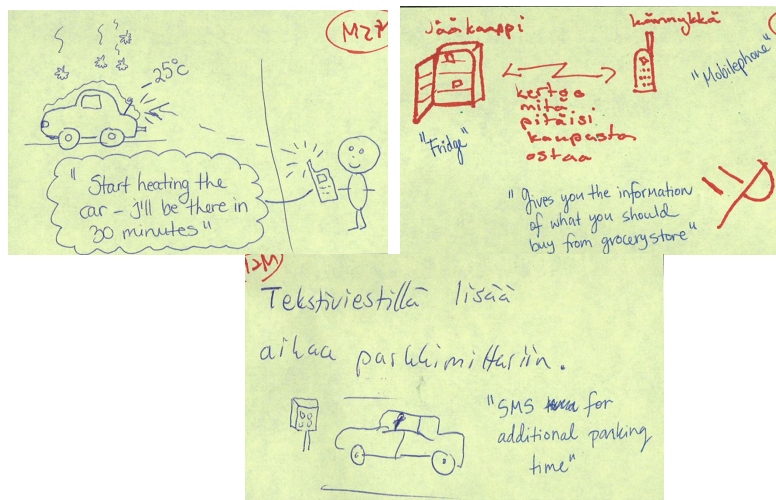 M27
-25°c
"Start heating the
car – I'll be there in
30 minutes"
Jääkaappi
kännykkä
"Mobilephone"
"Fridge"
kertoo
mitä
pitäisi
kaupasta
ostaa
"Gives you the information
of what you should
buy from grocerystore"
Tekstiviestillä lisää
aikaa parkkimittariin.
"SMS for
additional parking
time"